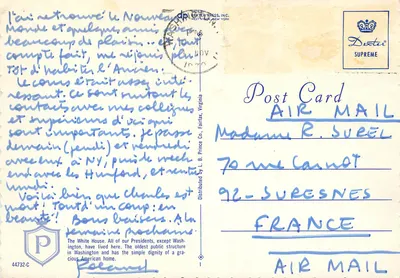 J'ai retrouvé le Nouveau
Monde et quelques amis
beaucoup de plaisir. Tout
compte fait, me réjouis plu-
tôt d'habiter l'Ancien.
Le cours était assez inté-
ressant. Ce sont surtout les
contacts avec mes collègues
et supérieurs d'ici qui
sont importants. Je passe
demain (jeudi) et vendredi
avec eux à NY, puis le week
end avec les Hunford, et rentre
lundi.
Voici bien que Charles est
mort! Tout à un coup, en
beauté! Bons baisers. A la
semaine prochaine.
Roland
P
The White House. All of our Presidents, except Wash-
ington, have lived here. The oldest public structure
in Washington and has the simple dignity of a gra-
cious American home.
44732-C
Distributed by L. B. Prince Co., Fairfax, Virginia
NOV
Dexter
SUPREME
Post Card
AIR MAIL
Madame R. SUREL
70 rue Carnot
92-SURESNES
FRANCE
AIR MAIL